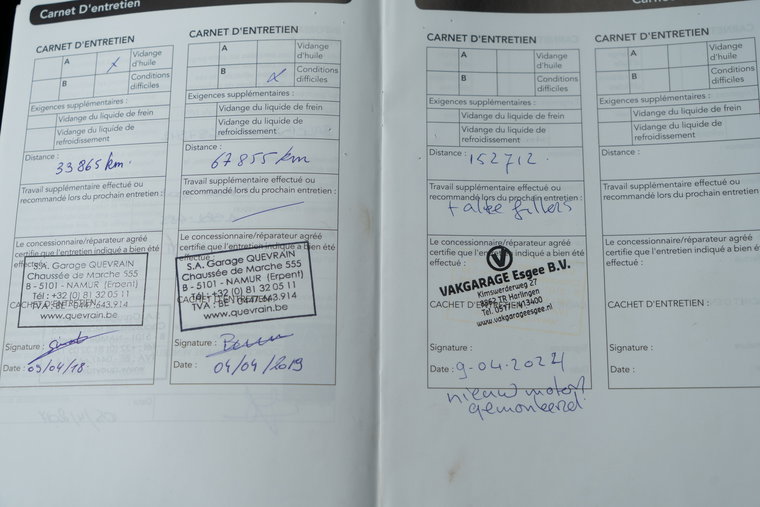 Carnet D'entretien
CARNET D'ENTRETIEN
A
x
Vidange d'huile
B
Conditions difficiles
Exigences supplémentaires :
Vidange du liquide de frein
Vidange du liquide de refroidissement
Distance :
33 865 km.
Travail supplémentaire effectué ou
recommandé lors du prochain entretien :
Le concessionnaire/réparateur agréé
certifie que l'entretien indiqué a bien été
effectué.
S.A. Garage QUEVRAIN
Chaussée de Marche 555
B - 5101 - NAMUR (Erpent)
Tél : +32 (0) 81 32 05 11
TVA : BE - 0447.643.914
www.quevrain.be
CACHET D'ENTRETIEN
Signature :
Date : 09/04/18.
CARNET D'ENTRETIEN
A
Vidange d'huile
B
Conditions difficiles
Exigences supplémentaires :
Vidange du liquide de frein
Vidange du liquide de refroidissement
Distance :
67 855 km
Travail supplémentaire effectué ou
recommandé lors du prochain entretien :
Le concessionnaire/réparateur agréé
certifie que l'entretien indiqué a bien été
effectué
S.A. Garage QUEVRAIN
Chaussée de Marche 555
B - 5101 - NAMUR (Erpent)
Tél : +32 (0) 81 32 05 11
TVA : BE - 0447.643.914
www.quevrain.be
CACHET D'ENTRETIEN
Signature :
Date : 04/04/2019
CARNET D'ENTRETIEN
A
Vidange d'huile
B
Conditions difficiles
Exigences supplémentaires :
Vidange du liquide de frein
Vidange du liquide de refroidissement
Distance :
152712.
Travail supplémentaire effectué ou
recommandé lors du prochain entretien :
+ alle filters
Le concessionnaire/réparateur agréé
certifie que l'entretien indiqué a bien été
effectué :
VAKGARAGE Esgee B.V.
Kimswerderweg 27
8862 TR Harlingen
Tel. 0517 - 413400
www.vakgarageesgee.nl
CACHET D'
Signature :
Date : 9-04-2024
nieuw motor
gemonteerd
CARNET D'ENTRETIEN
A
Vidange d'huile
B
Conditions difficiles
Exigences supplémentaires :
Vidange du liquide de frein
Vidange du liquide de
refroidissement
Distance :
Travail supplémentaire effectué ou
recommandé lors du prochain entretien :
Le concessionnaire/réparateur agréé
certifie que l'entretien indiqué a bien été
effectué :
CACHET D'ENTRETIEN :
Signature :
Date :